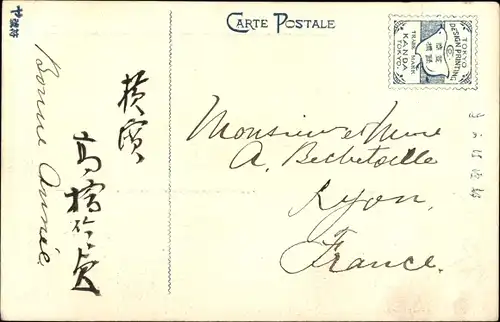 CARTE POSTALE
TOKYO
DESIGN PRINTING
Co
TRADE MARK
KANDA
TOKYO.
Bonne Année.
横濱
高橋
Monsieur et Mme
A. Bechetoille
Lyon,
France.